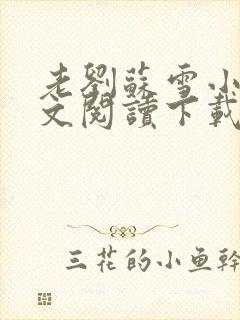 老劉蘇雪小
文閱讀下載
三花的小鱼幹